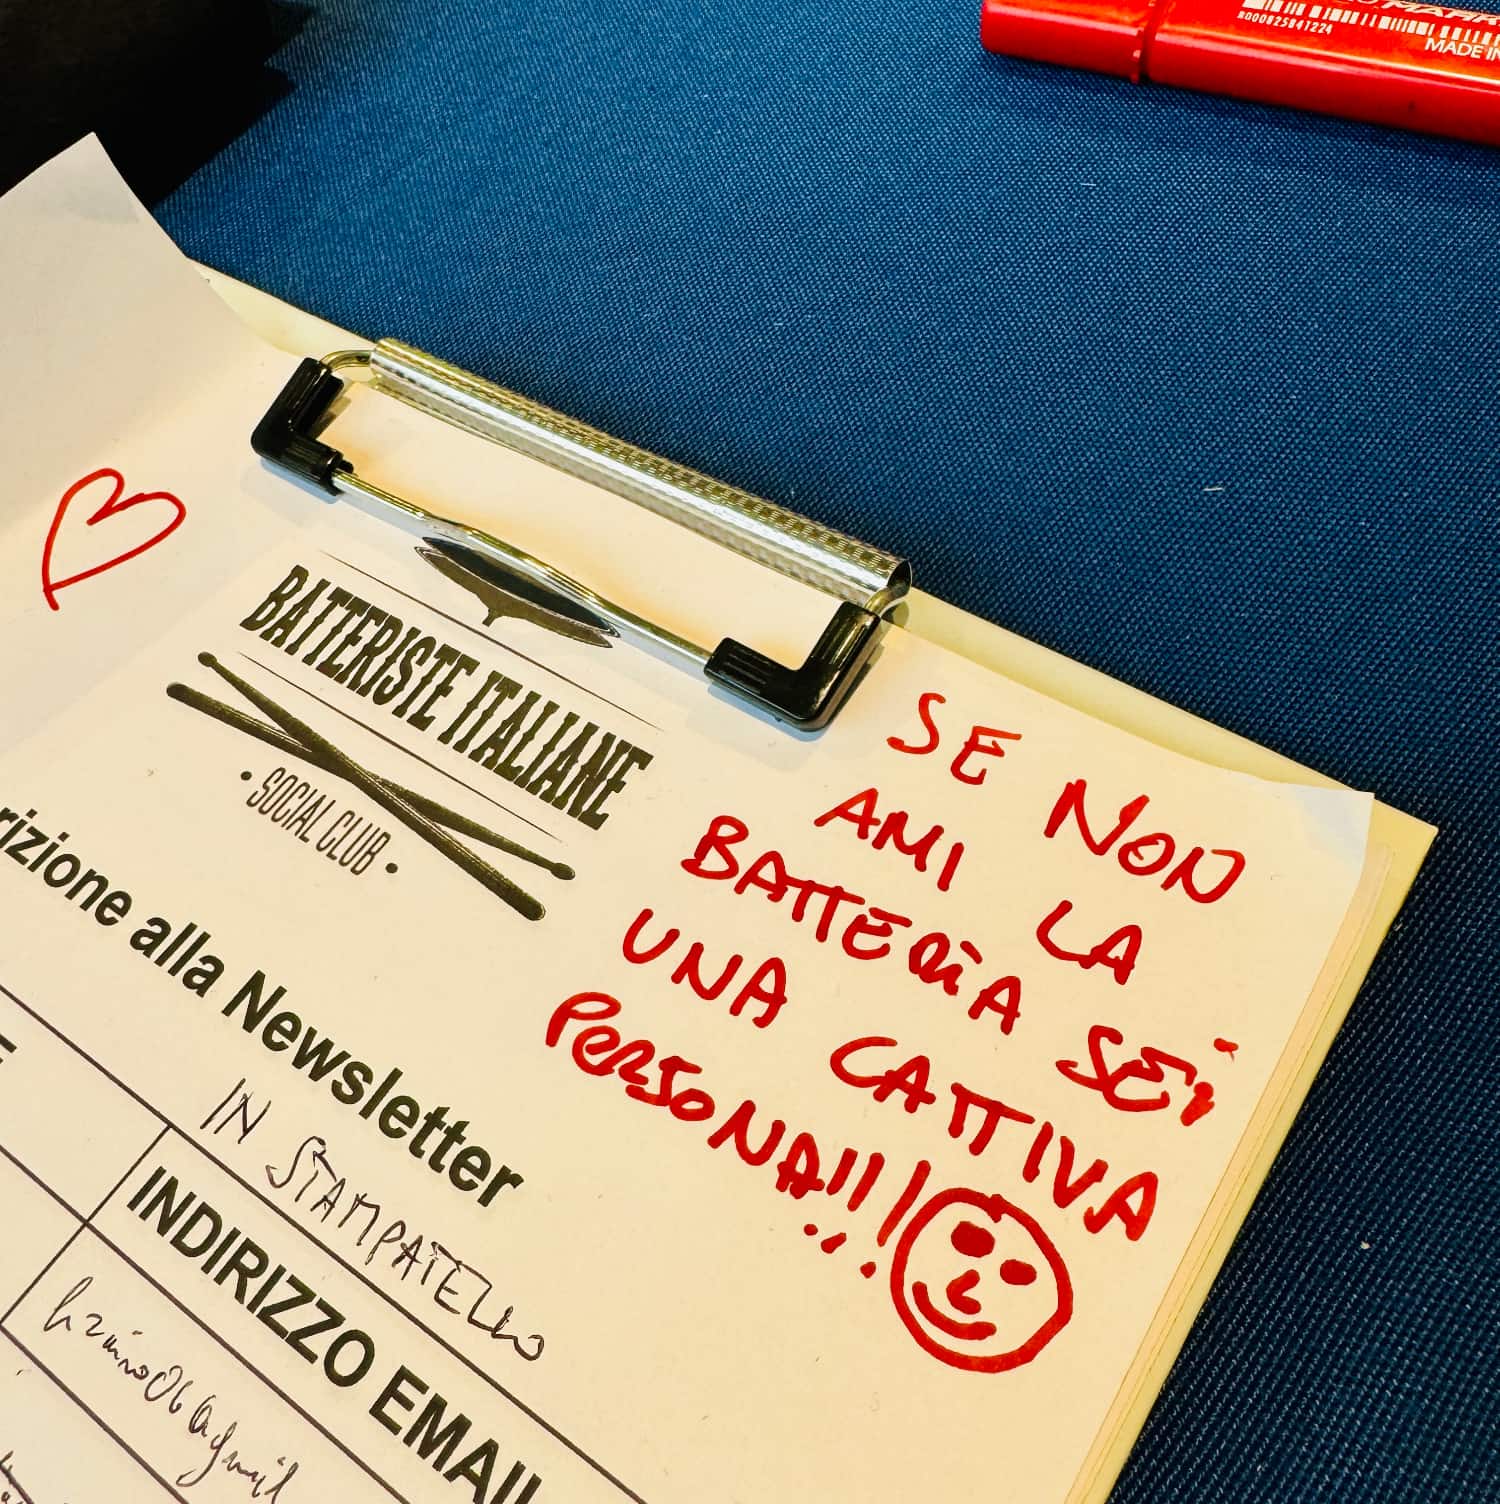 R000825841224
MADE IN
BATTERISTE ITALIANE
• SOCIAL CLUB •
SE NON
AMI LA
BATTERIA SEI
UNA CATTIVA
PERSONA!!!
rizione alla Newsletter
IN STAMPATELLO
INDIRIZZO EMAIL